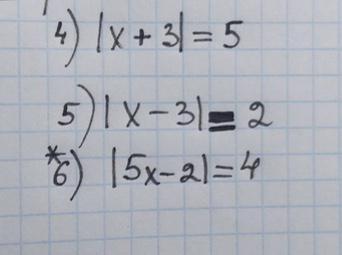 4) |x + 3| = 5
5) |x - 3| = 2
*6) |5x - 2| = 4